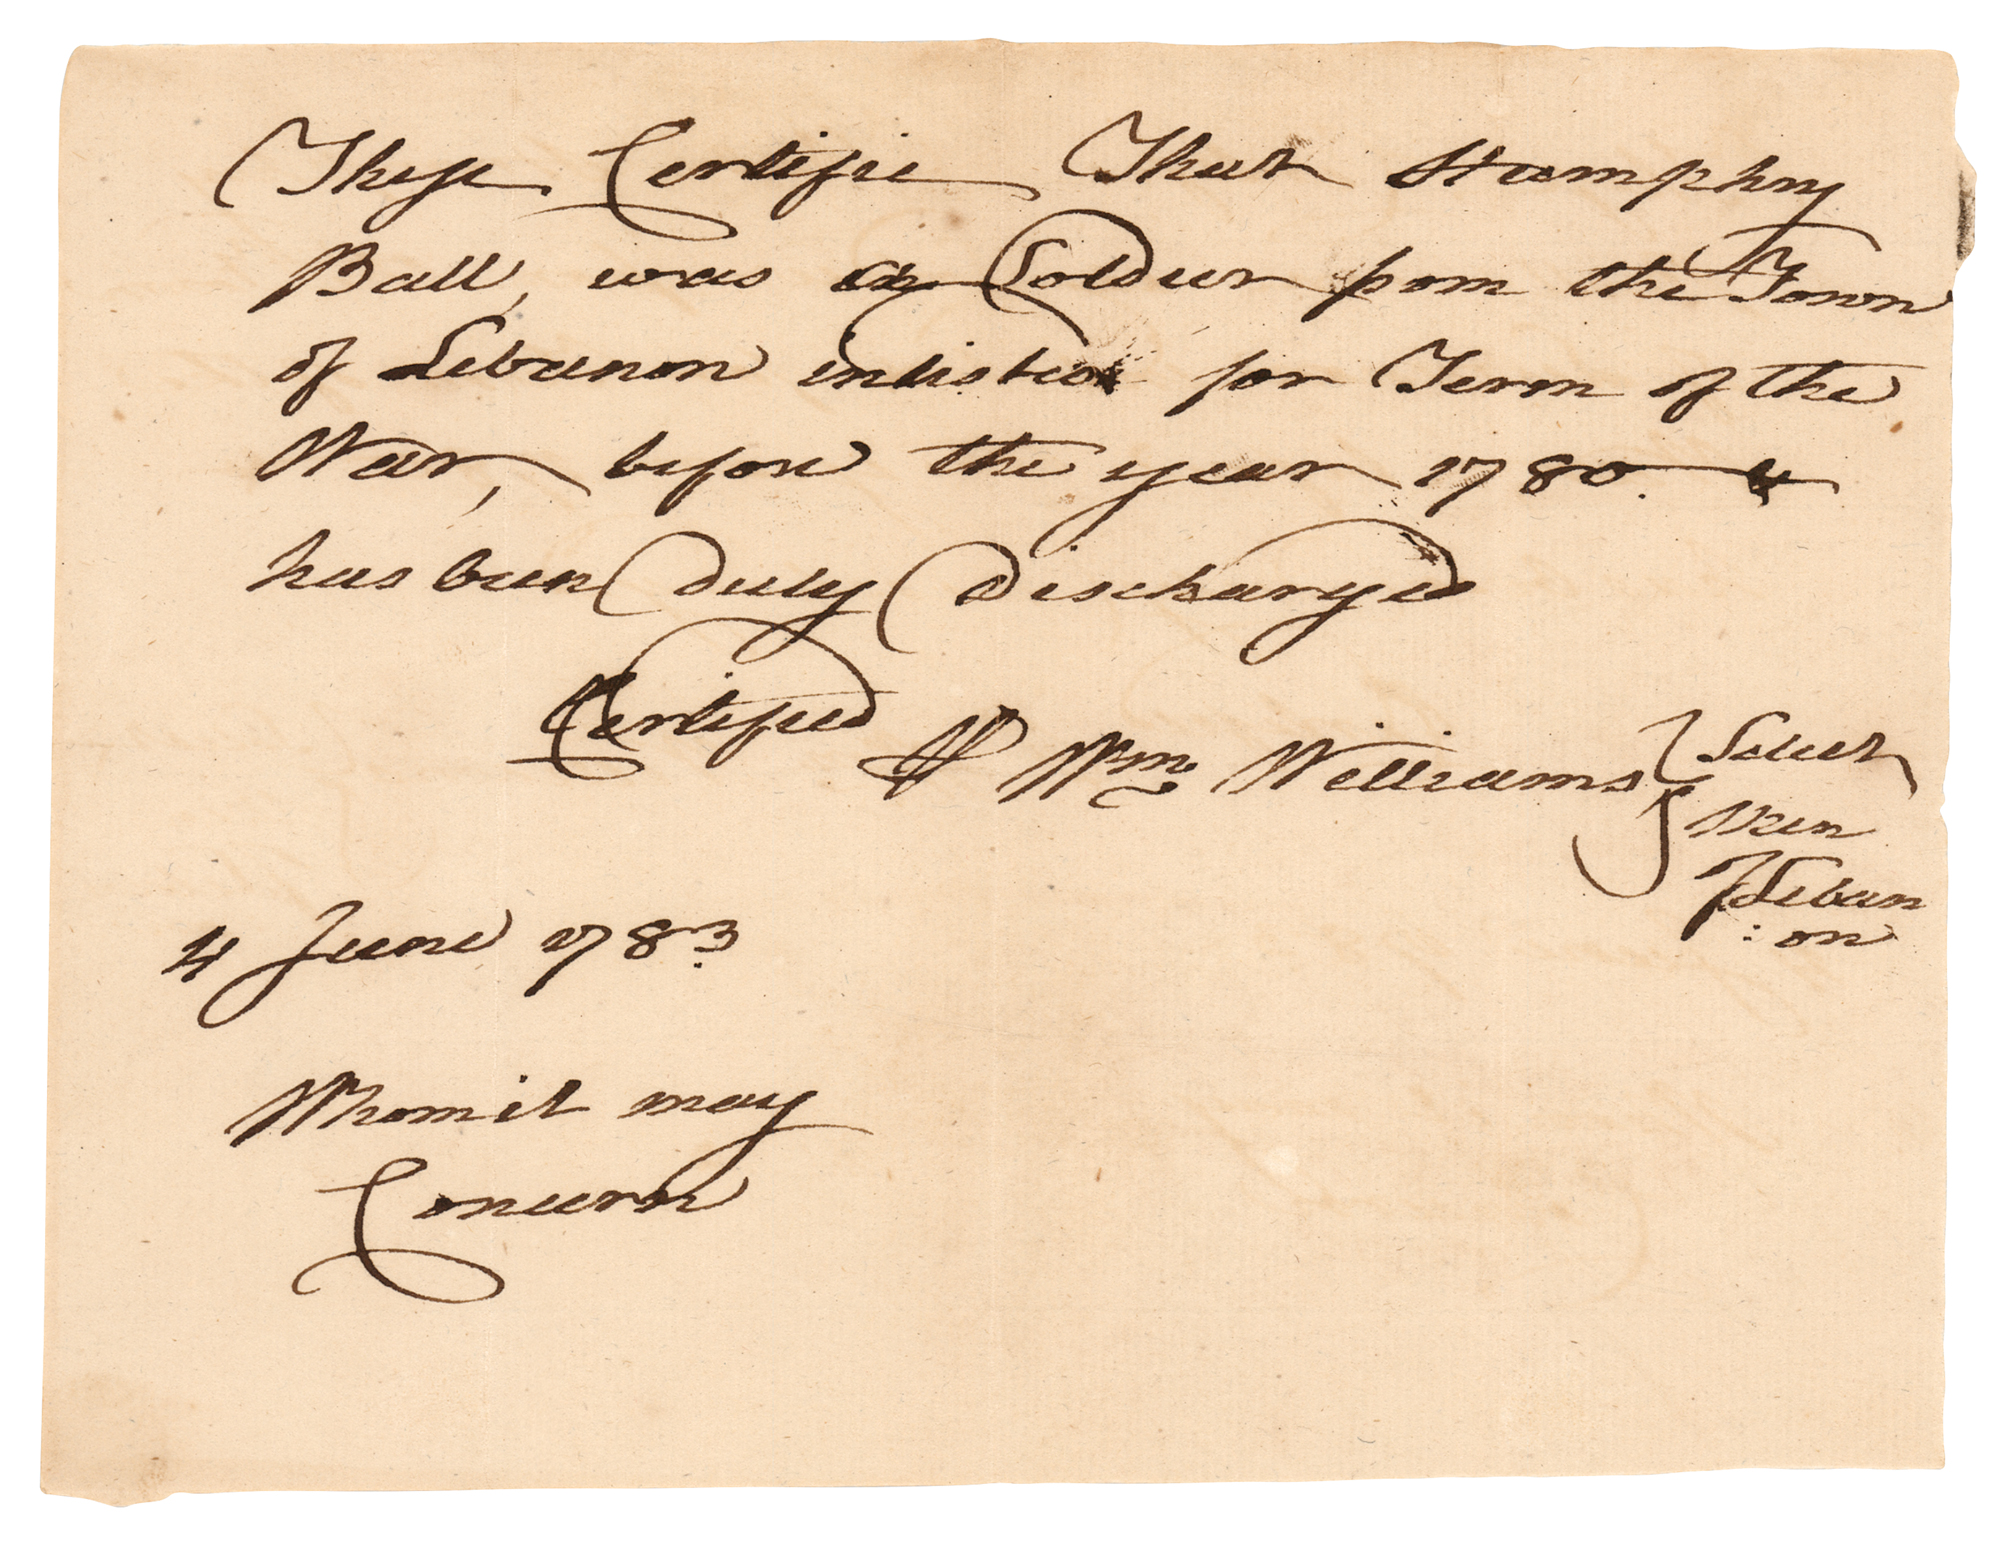 These Certifie That Humphry
Ball, was a Soldier from the Town
of Lebanon inlisted for Term of the
War, before the year 1780 &
has been duly Discharged
Certified
Wm. Williams } Select
Men
of Leban
: on
4 June 1783
Whom it may
Concern